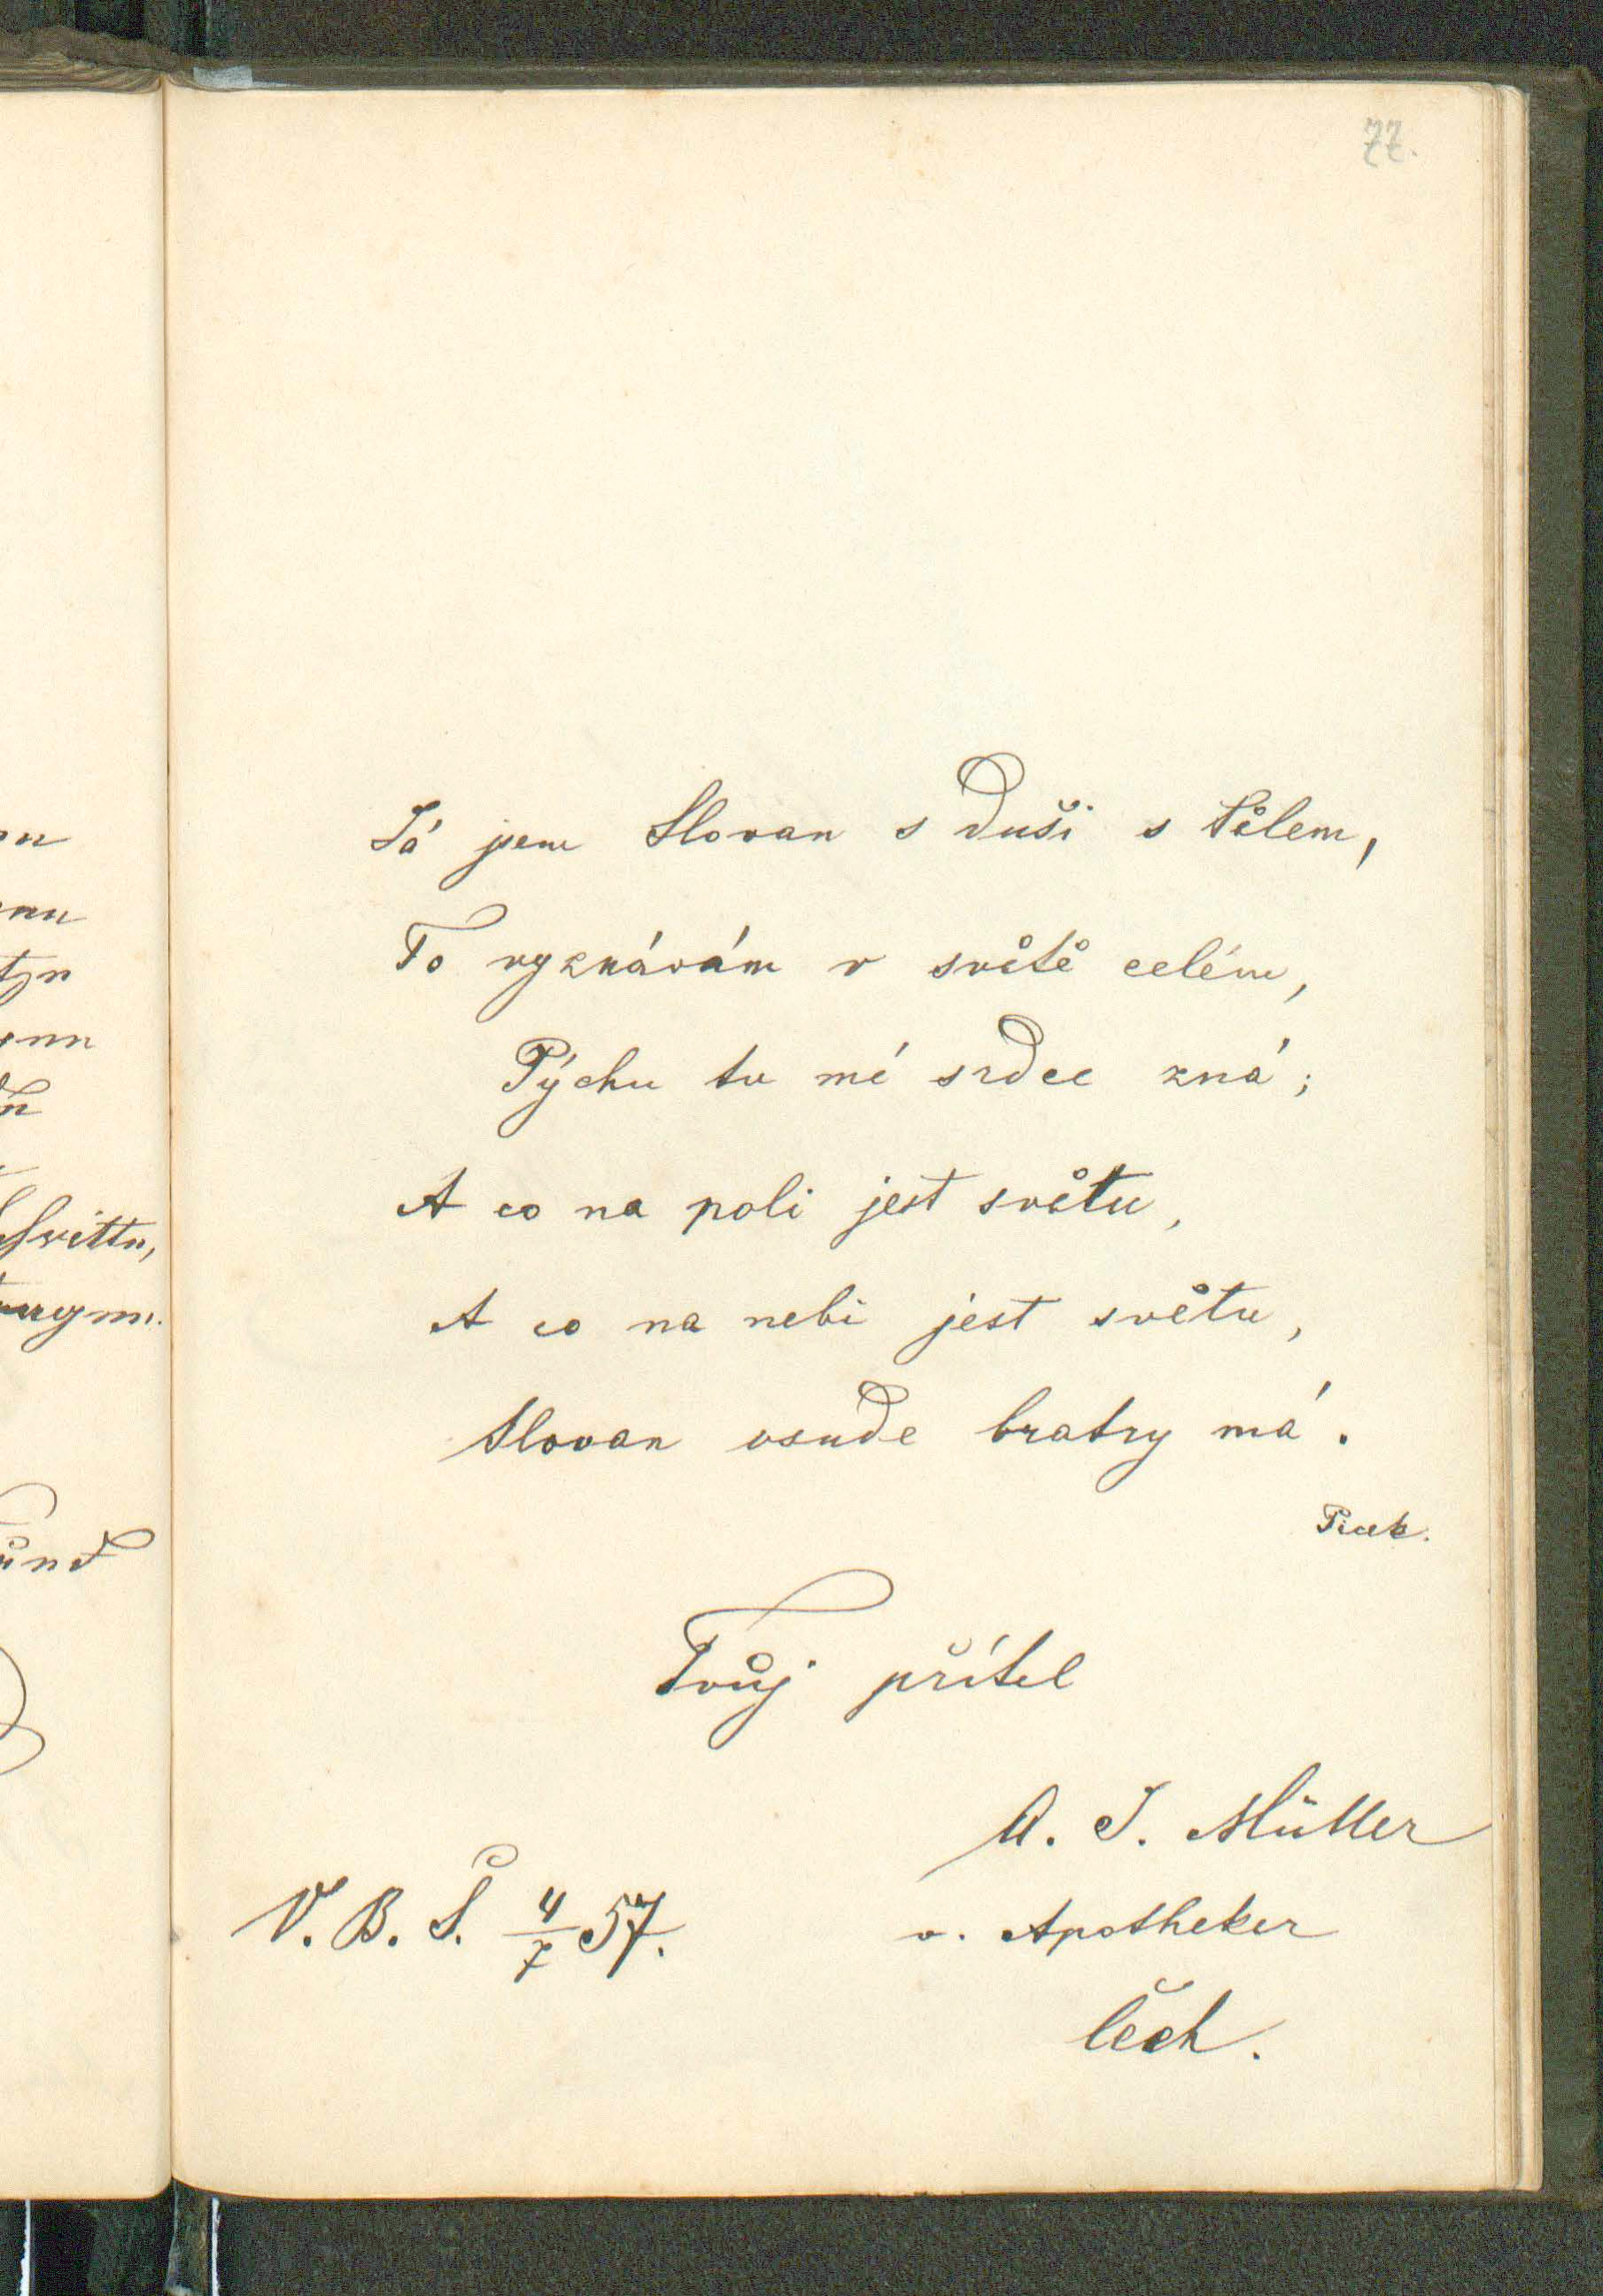 77.
Já jsem Slovan s duší s tělem,
To vyznávám v světě celém,
Pýchu tu mé srdce zná;
A co na poli jest světu,
A co na nebi jest světu,
Slovan vsude bratry má.
Picek.
Tvůj přítel
A. J. Müller
V. B. Š. 4/7 57.
v. Apotheker
Čech.